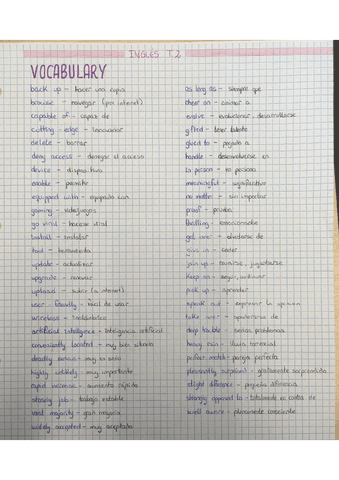 INGLES T2
VOCABULARY
back up - hacer una copia
browse - navegar (por internet)
capable of - capaz de
cutting - edge - innovador
delete - borrar
deny access - denegar el acceso
device - dispositivo
enable - permitir
equipped with - equipado con
gaming - videojuegos
go viral - hacerse viral
install - instalar
tool - herramienta
update - actualizar
upgrade - renovar
upload - subir (a internet)
user friendly - fácil de usar
wireless - inalámbrico
artificial intelligence - inteligencia artificial
conveniently located - muy bien situado
deadly serious - muy en serio
highly unlikely - muy improbable
rapid increase - aumento rápido
steady job - trabajo estable
vast majority - gran mayoría
widely accepted - muy aceptado
as long as - siempre que
cheer on - animar a
evolve - evolucionar, desarrollarse
gifted - tener talento
glued to - pegado a
handle - desenvolverse en
in person - en persona
meaningful - significativo
no matter - sin importar
proof - prueba
thrilling - emocionante
get over -
give in - ceder
join up -
keep on - seguir, continuar
pick up - aprender
speak out - expresar la opinión
take over - apoderarse de
deep trouble - serios problemas
heavy rain - lluvia torrencial
perfect match - pareja perfecta
pleasantly surprised - gratamente sorprendido
slight difference - pequeña diferencia
strongly opposed to - totalmente en contra de
well aware - plenamente consciente